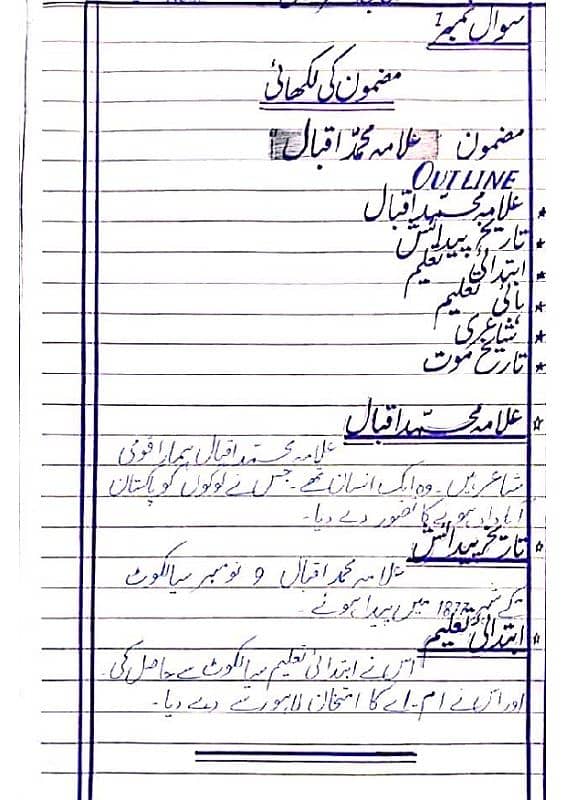 سوال نمبر 1
مضمون کی لکھائی
مضمون علامہ محمّد اقبال
OUTLINE
* علامہ محمّد اقبال
* تاریخ پیدائش
* ابتدائی تعلیم
* ہائی تعلیم
* شاعری
* تاریخ موت
☆ علامہ محمّد اقبال
علامہ محمّد اقبال ہمارا قومی
شاعر ہیں۔ وہ ایک انسان تھے۔ جس نے لوگوں کو پاکستان
ہونے کا تصور دے دیا۔
☆ تاریخ پیدائش
علامہ محمد اقبال 9 نومبر سیالکوٹ
کے شہر 1877 میں پیدا ہوئے۔
☆ ابتدائی تعلیم
اس نے ابتدائی تعلیم سیالکوٹ سے حاصل کی۔
اور اس نے ام۔اے کا امتحان لاہور سے دے دیا۔